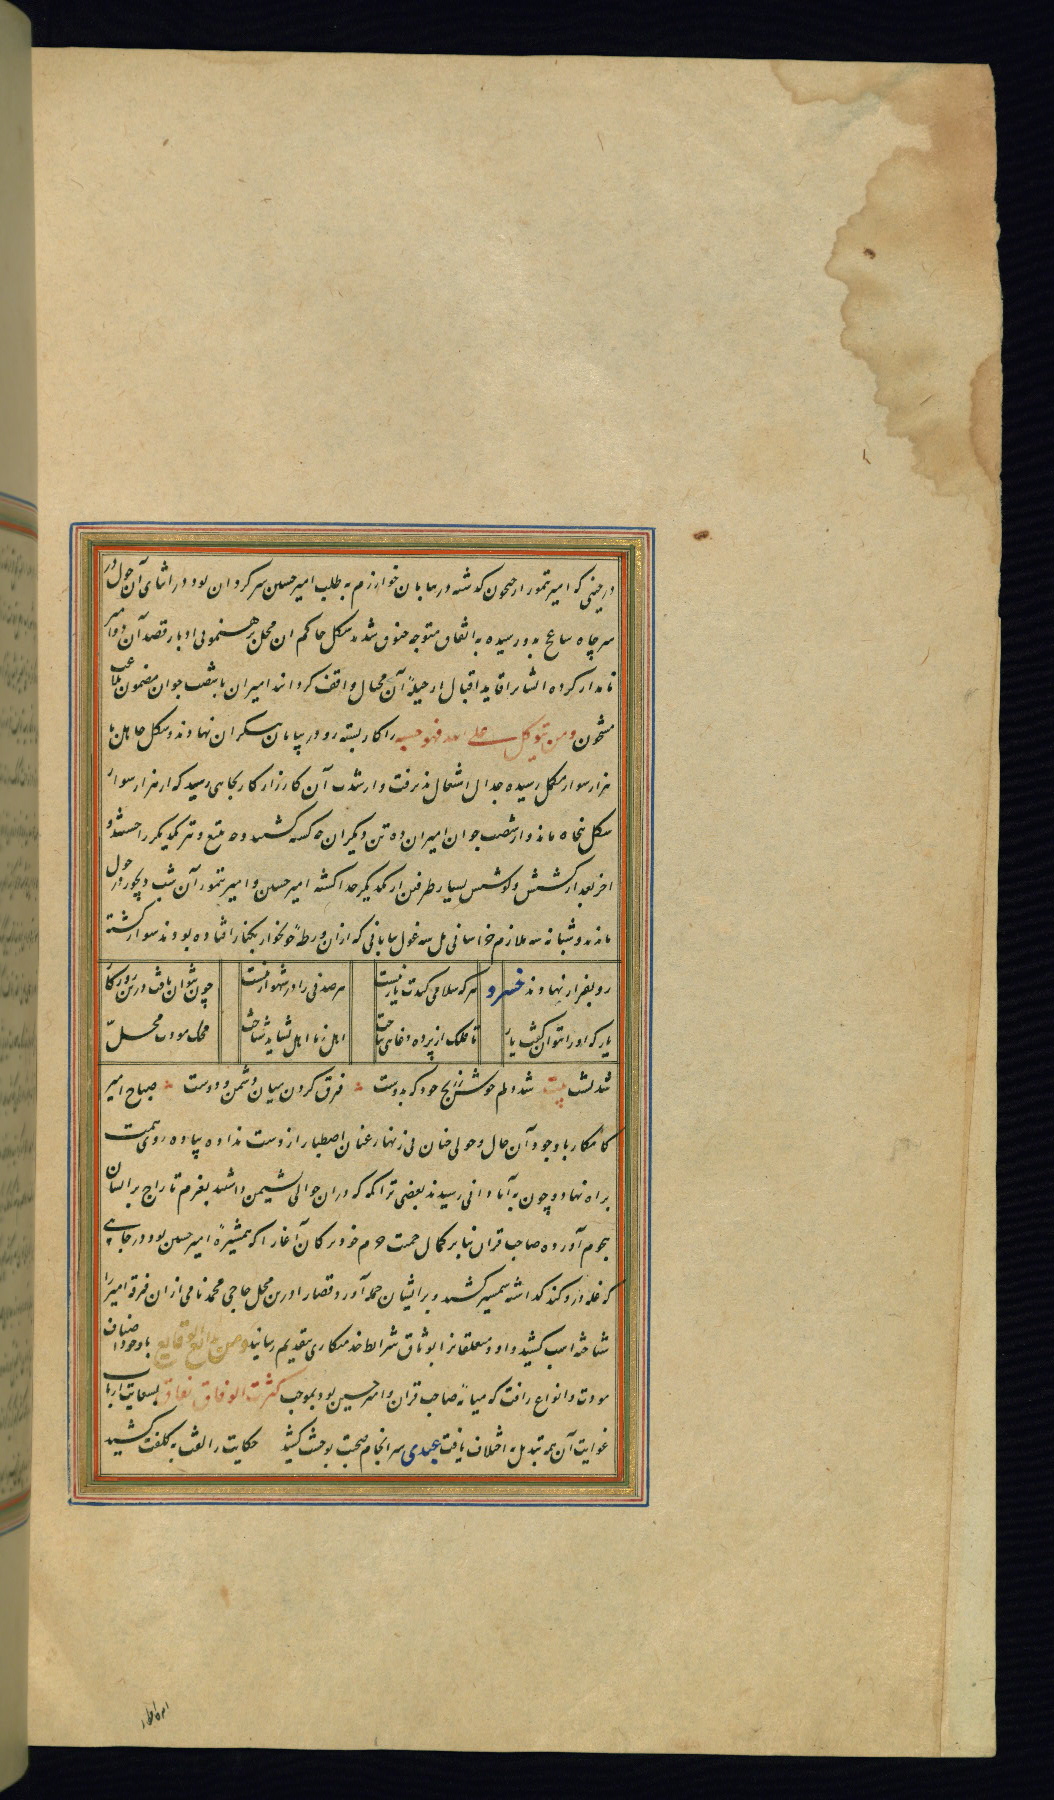 در حینی که امیر تیمور از جیحون گذشته در بیابان خوارزم به طلب امیر حسین سرگردان بود در اثنای آن حول در
سر چاه ساعج بدو رسیده به اتفاق متوجه خیوق شدند تنکل حاکم آن محل برهنمونی ادبار قصد آن دو امیر
نامدار کرده ایشان را قاید اقبال از حیلهٔ آن محیل واقف گرداند امیران با شصت جوان مضمون بلاغت
مشحون ومن یتوکل علی الله فهو حسبه را کار بسته رو در بیابان بیکران نهادند و تنکل جاهل با
هزار سوار مکمل رسیده جدال اشتعال پذیرفت و از شدت آن کارزار کار بجایی رسید که از هزار سوار
تنکل پنجاه ماند و از شصت جوان امیران ده تن دیگران همه کشته گشتند و به تیغ و تیر یکدیگر را خستند و
آخر بعد از کشش و کوشش بسیار طرفین از یکدیگر جدا گشته امیر حسین و امیر تیمور آن شب دیجور در حول
ماندند و شبانه سه ملازم خراسانی مل سه غول بیابانی که از آن ورطهٔ خونخوار بکنار افتاده بودند سوار گشته
رو بفرار نهادند خسرو هر که سلامی کندت یار نیست هر صدفی را در شهوار نیست چون بتوان یافت درین روزگار
یار که او را بتوان گفت یار تا فلک از پرده دغایی نباخت اهل ز نا اهل نشاید شناخت محک مودت محل
شد لشت بیت شد دلم خوش برنج خود که بدوست فرق کردن میان دشمن و دوست صباح امیر
کامکار با وجود آن حال و حولی چنان بی زنهار عنان اصطبار از دست نداده پیاده روی همت
براه نهاد و چون به آبادانی رسیدند بعضی تراکمه که در آن حوالی نشیمن داشتند بعزم تاراج بر ایشان
هجوم آورده صاحب قران بنابر کمال حمیت حرم خود ترکان آغا را که همشیرهٔ امیر حسین بود در چاهی
که غله درو کنند گذاشته شمشیر کشید و بر ایشان حمله آورد و قضا را درین محل حاجی محمد نامی از آن فرقه امیر را
شناخته اسب کشید و او و متعلقانرا بوثاق شرائط خدمتکاری بتقدیم رسانید ومن بدائع الوقایع با وجود اصناف
مودت و انواع رافت که میانهٔ صاحب قران و امیر حسین بود بموجب کثرت الوفاق نفاق بسعایت ارباب
غوایت آن همه تبدیل به اختلاف یافت عبدی سرانجام صحبت بوحشت کشید حکایت ز الفت به کلفت کشید